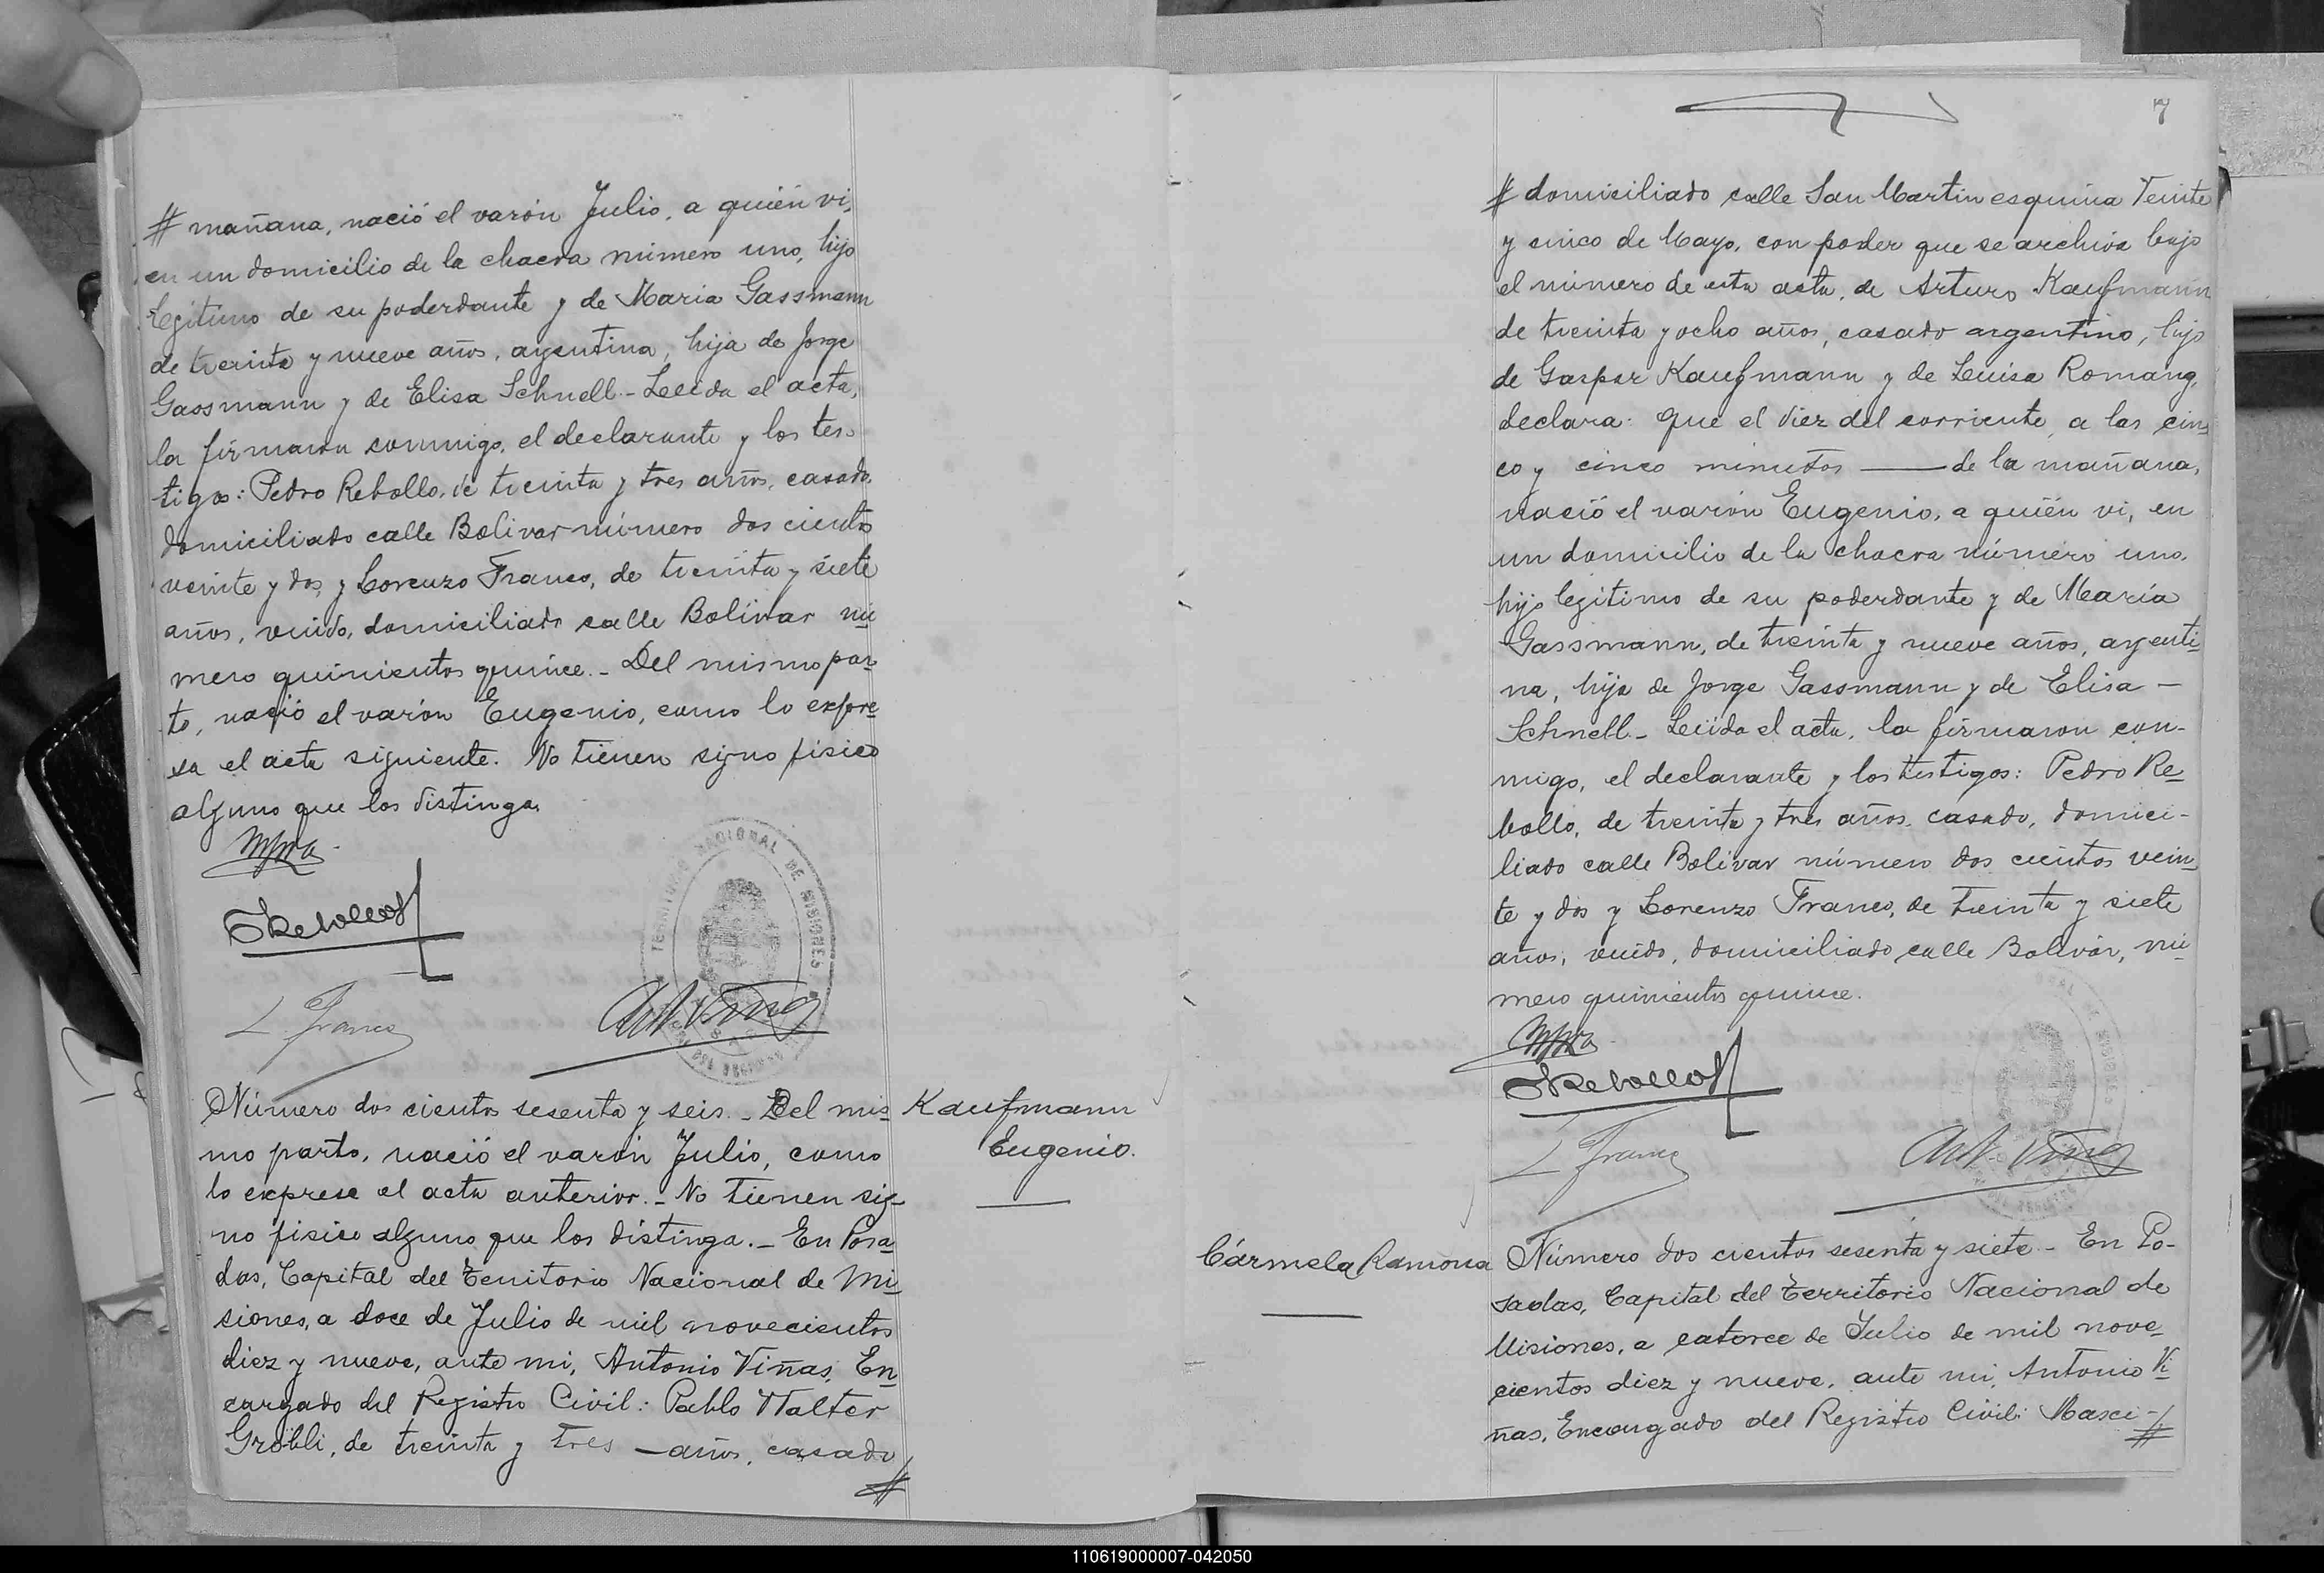 # mañana, nació el varón Julio, a quién vi,
en un domicilio de la chacra número uno, hijo
legítimo de su poderdante y de Maria Gassmann
de treinta y nueve años, argentina, hija de Jorge
Gassmann y de Elisa Schnell.- Leida el acta,
la firmaron conmigo, el declarante y los tes-
tigos: Pedro Rebollo, de treinta y tres años, casado,
domiciliado calle Bolivar número dos cientos
veinte y dos, y Lorenzo Franco, de treinta y siete
años, viudo, domiciliado calle Bolivar nú
mero quinientos quince.- Del mismo par-
to, nació el varón Eugenio, como lo expre
sa el acta siguiente. No tienen signo fisico
alguno que los distinga.
TERRITORIO NACIONAL DE MISIONES
PRebollo
L. Franco
Ant. Viñas
Número dos cientos sesenta y seis.- Del mis
mo parto, nació el varón Julio, como
lo expresa el acta anterior.- No tienen sig-
no fisico alguno que los distinga.- En Posa
das, Capital del Territorio Nacional de Mi
siones, a doce de Julio de mil novecientos
diez y nueve, ante mi, Antonio Viñas, En
cargado del Registro Civil: Pablo Walter
Gröbli, de treinta y tres — años, casado
#
Kaufmann
Eugenio.
7
# domiciliado calle San Martin esquina Veinte
y cinco de Mayo, con poder que se archiva bajo
el número de esta acta, de Arturo Kaufmann
de treinta y ocho años, casado argentino, hijo
de Gaspar Kaufmann y de Luisa Romang,
declara: Que el diez del corriente, a las cin
co y cinco minutos — de la mañana,
nació el varón Eugenio, a quién vi, en
un domicilio de la chacra número uno,
hijo legítimo de su poderdante y de María
Gassmann, de treinta y nueve años, argenti
na, hija de Jorge Gassmann y de Elisa -
Schnell.- Leida el acta, la firmaron con-
migo, el declarante y los testigos: Pedro Re
bollo, de treinta y tres años, casado, domici-
liado calle Bolivar número dos cientos vein
te y dos y Lorenzo Franco, de treinta y siete
años, viudo, domiciliado calle Bolivar, nú
mero quinientos quince.
PRebollo
L Franco
Ant. Viñas
Cármela Ramona
Número dos cientos sesenta y siete.- En Po-
sadas, Capital del Territorio Nacional de
Misiones, a catorce de Julio de mil nove
cientos diez y nueve, ante mi, Antonio Vi
ñas, Encargado del Registro Civil: Masci-
#
110619000007-042050